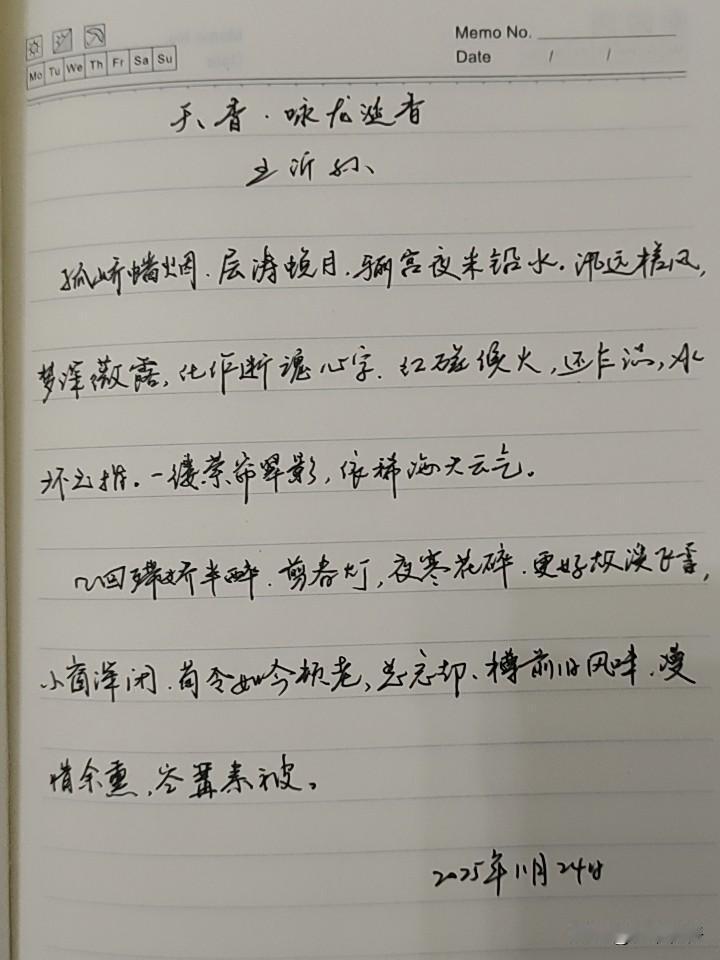 Memo No.
Mo Tu We Th Fr Sa Su
Date / /
天香·咏龙涎香
王沂孙
孤峤蟠烟,层涛蜕月,骊宫夜采铅水。汛远槎风,
梦深薇露,化作断魂心字。红磁候火,还乍识,冰
环玉指。一缕萦帘翠影,依稀海天云气。
几回殢娇半醉,剪春灯,夜寒花碎。更好故溪飞雪,
小窗深闭。荀令如今顿老,总忘却、樽前旧风味。漫
惜余熏,空篝素被。
2025年11月24日